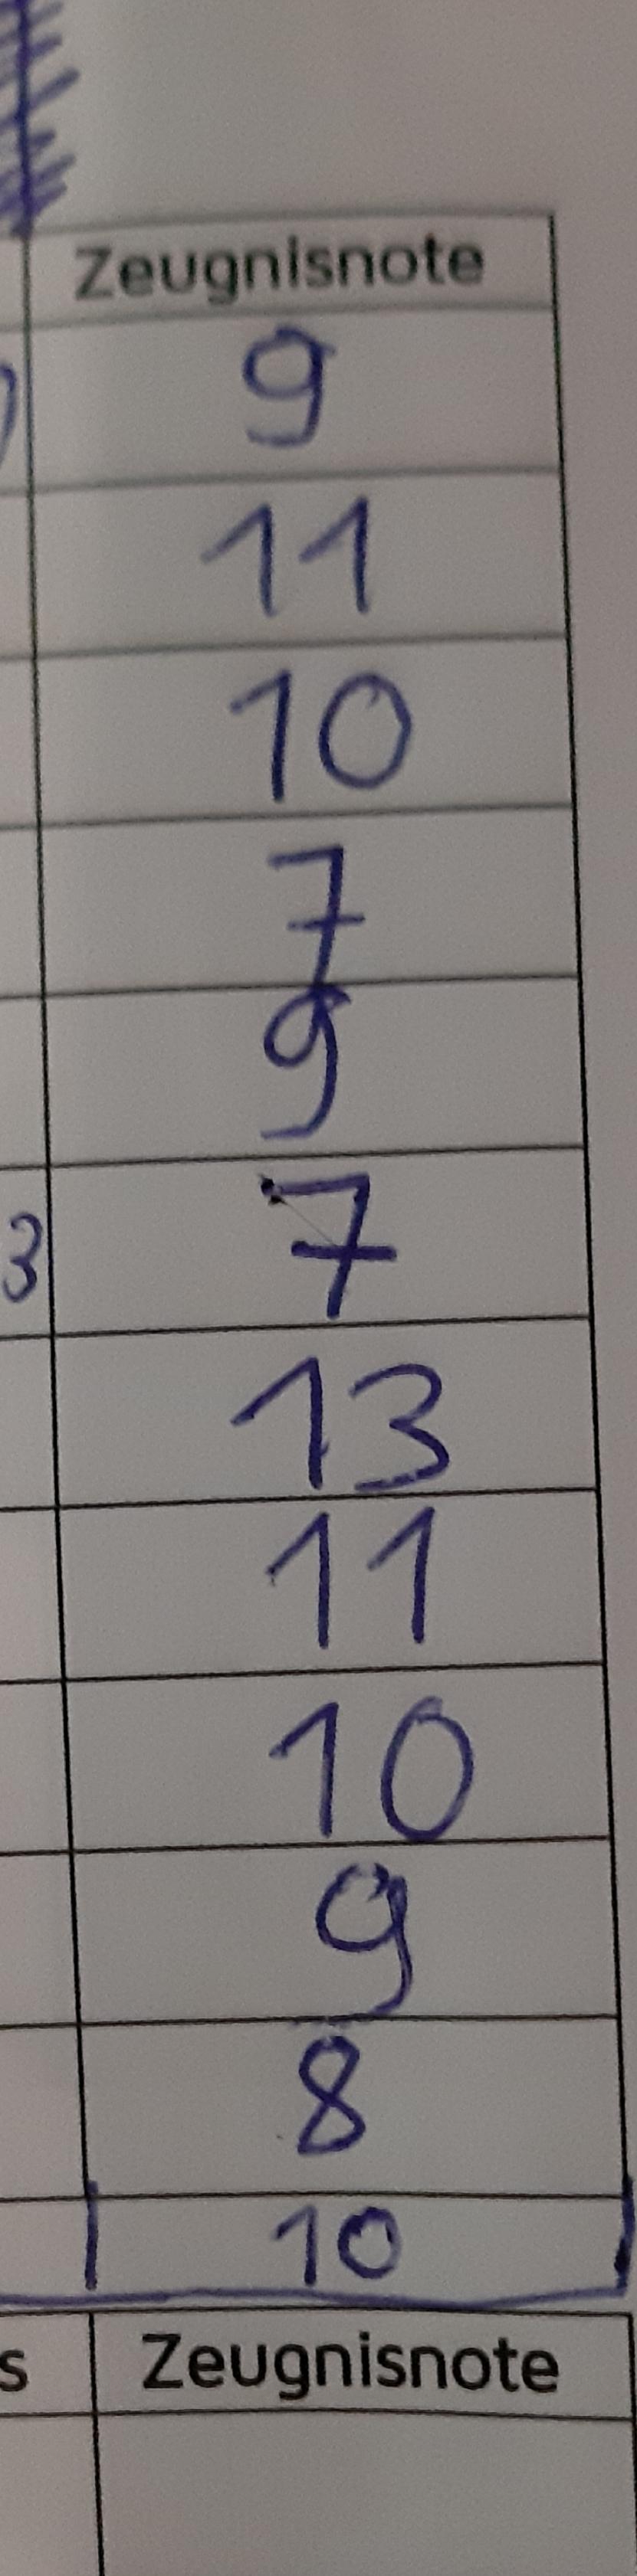 Zeugnisnote
9
11
10
7
9
3 7
13
11
10
9
8
10
s Zeugnisnote